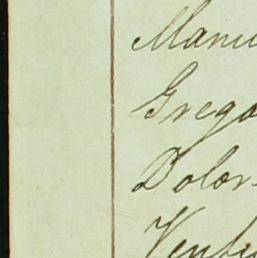 Manu
Grego
Dolor
Ventu